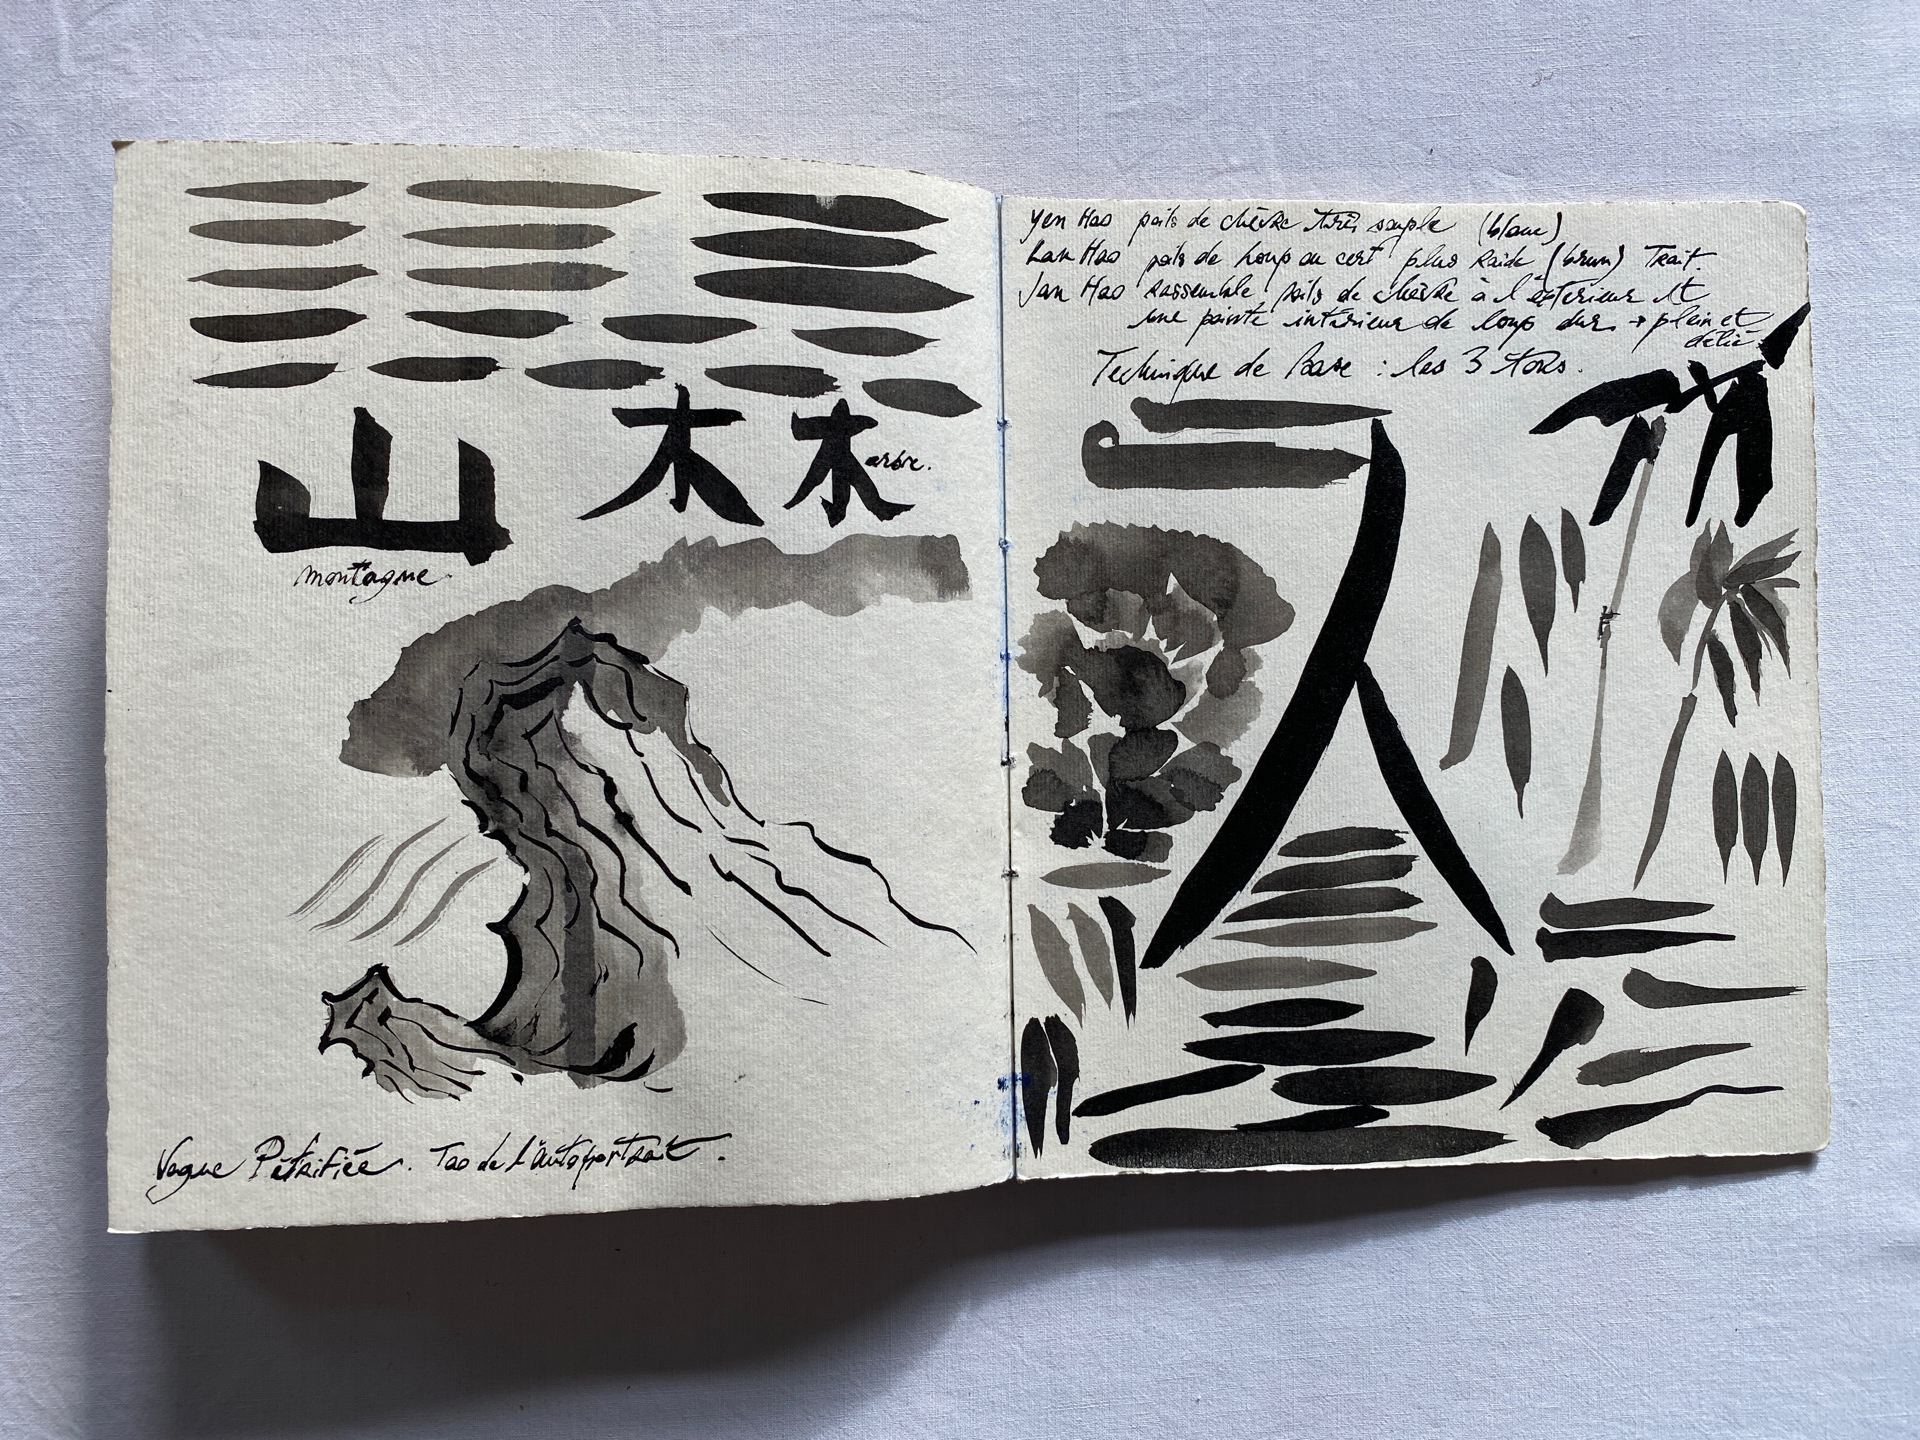 山 木 木
arbre.
montagne
Vague Pétrifiée. Tao de l'autoportrait.
Yen Hao poils de chèvre très souple (blanc)
Lan Hao poils de loup ou cerf plus raide (brun) Trait.
Jan Hao rassemble poils de chèvre à l'extérieur et
une pointe intérieur de loup dur → plein et
délié
Technique de Base : les 3 tons.
人
竹